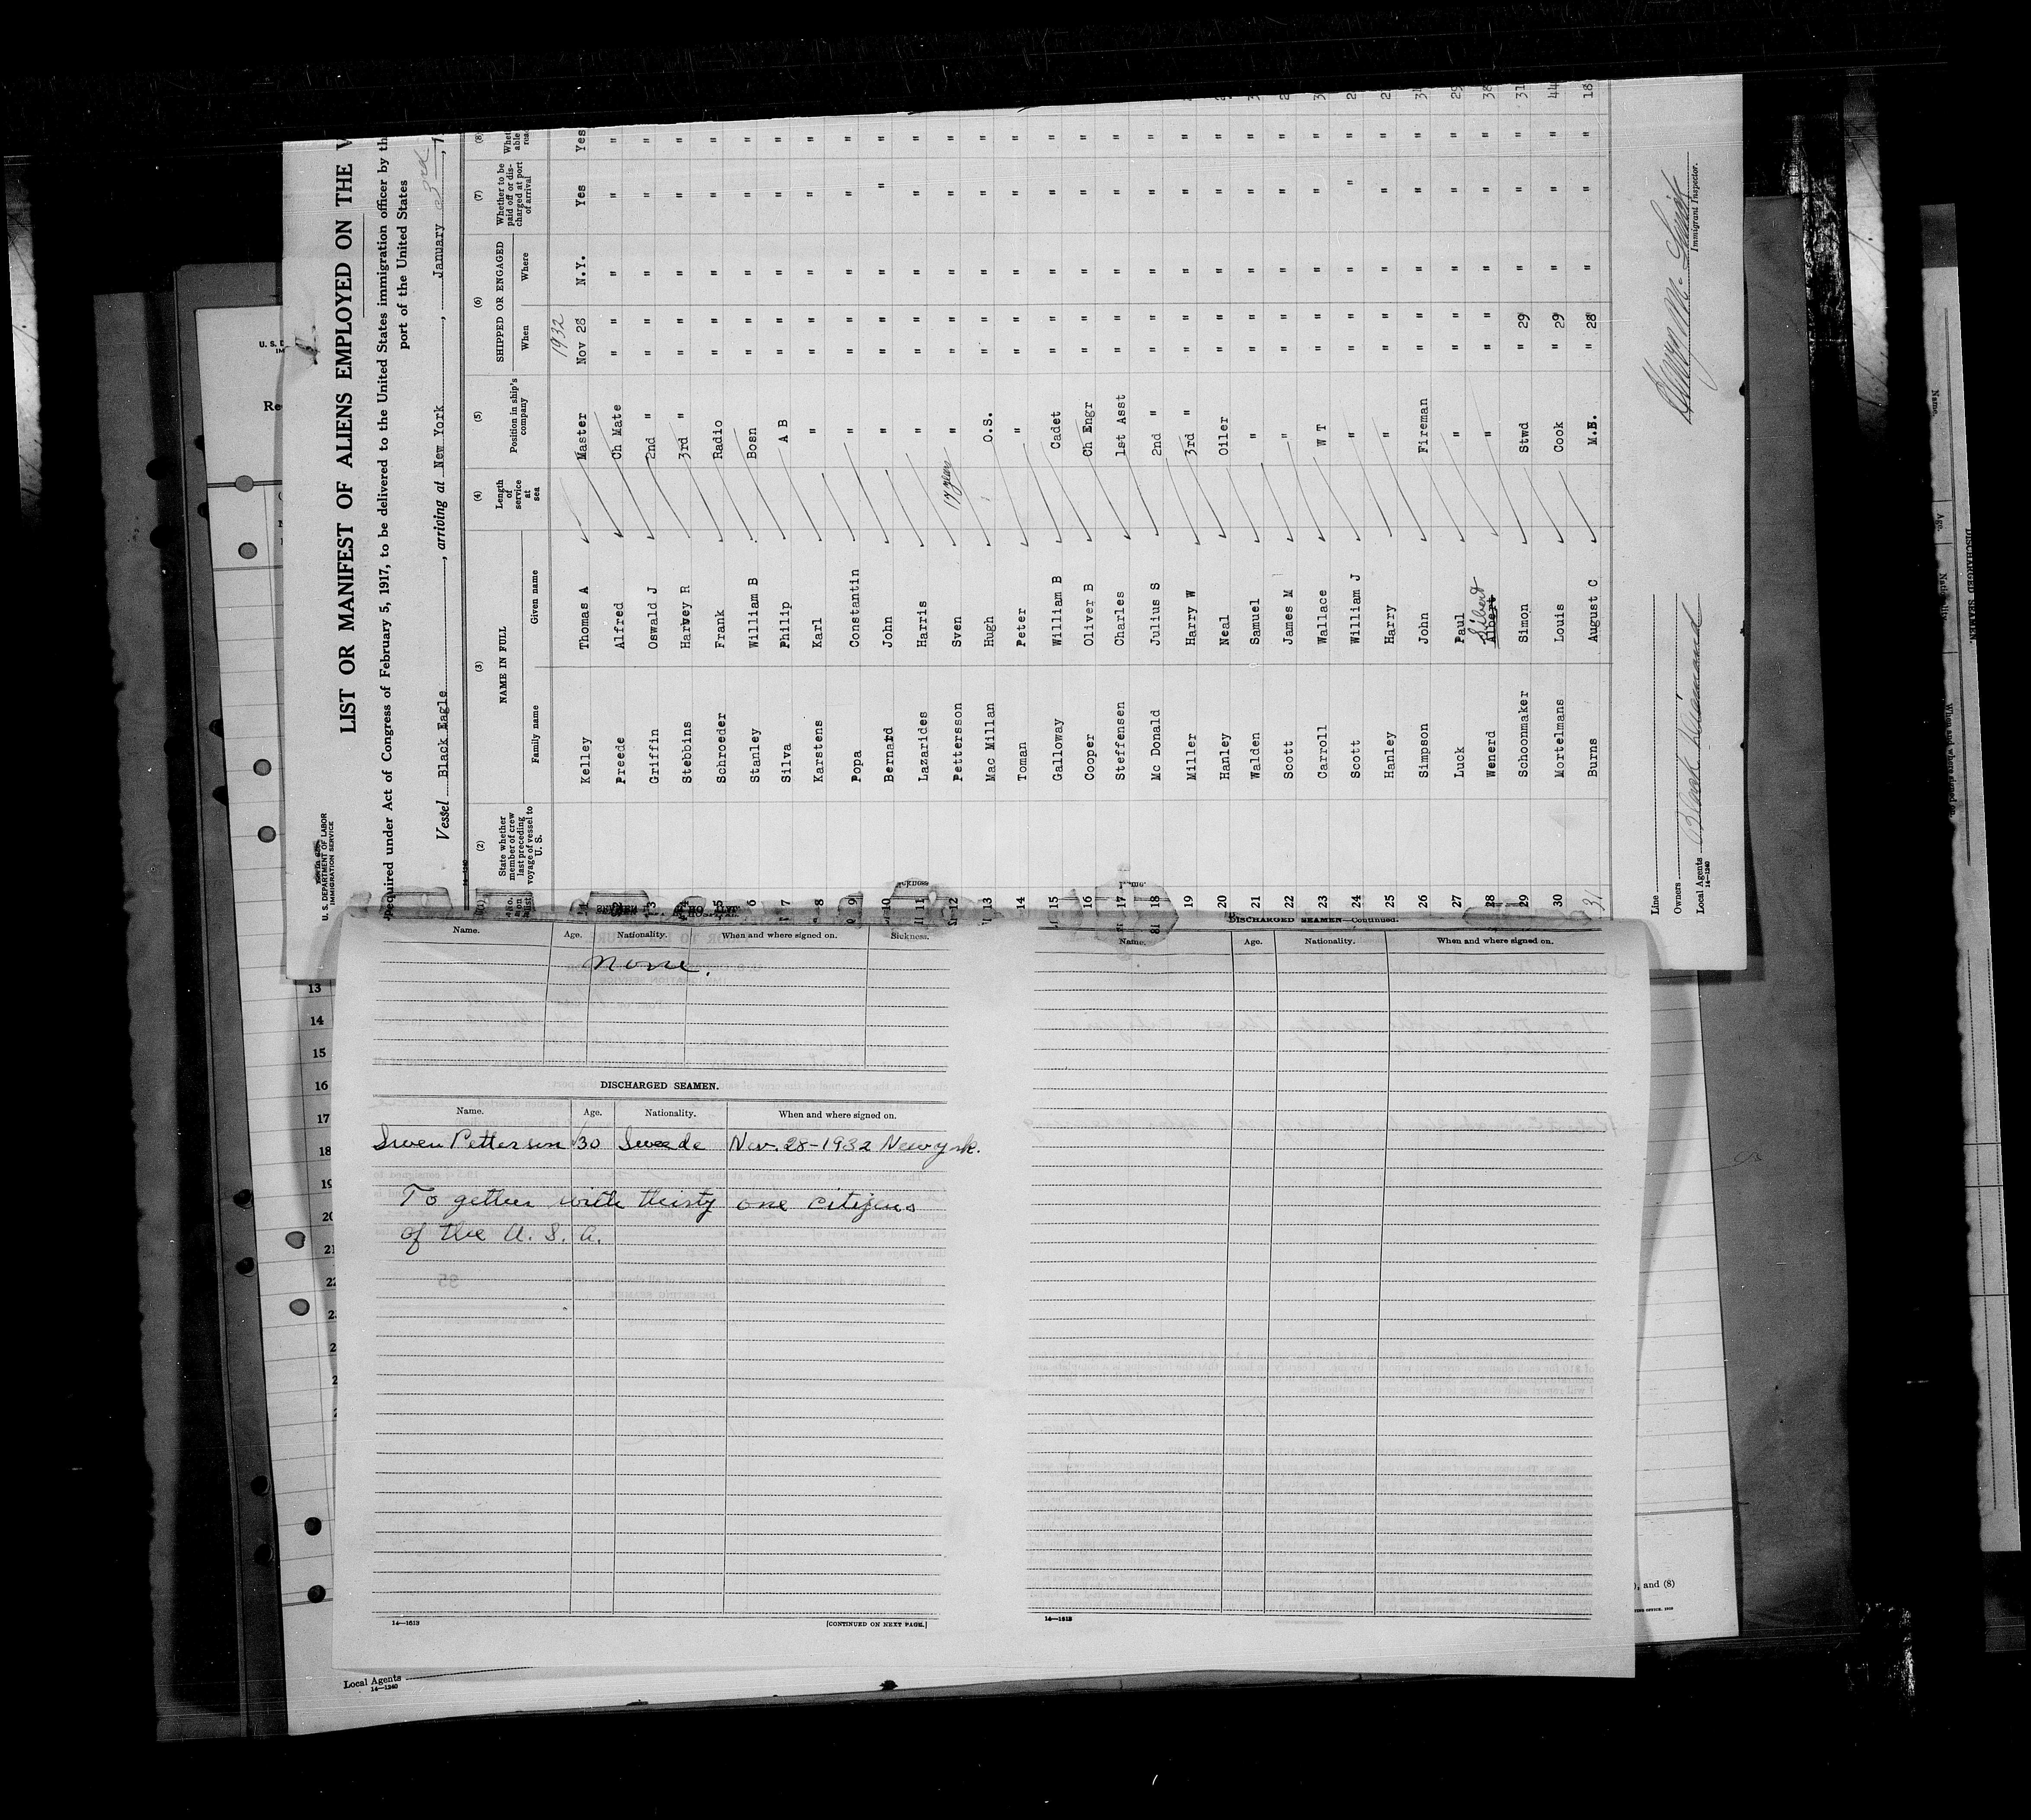 U. S. DEPARTMENT OF LABOR
IMMIGRATION SERVICE
LIST OR MANIFEST OF ALIENS EMPLOYED ON THE V
Required under Act of Congress of February 5, 1917, to be delivered to the United States immigration officer by th
port of the United States
Vessel Black Eagle, arriving at New York, January 3rd, 1
(2) (3) (4) (5) (6) (7) (8)
State whether member of crew last preceding voyage of vessel to U. S.
NAME IN FULL
Family name Given name
Length of service at sea
Position in ship's company
SHIPPED OR ENGAGED
When Where
Whether to be paid off or discharged at port of arrival
1932
1 Kelley Thomas A Master Nov 28 N.Y. Yes Yes
2 Preede Alfred Ch Mate " " " " "
3 Griffin Oswald J 2nd " " " " " "
4 Stebbins Harvey R 3rd " " " " " "
5 Schroeder Frank Radio " " " " "
6 Stanley William B Bosn " " " " "
7 Silva Philip A B " " " " "
8 Karstens Karl " " " " " "
9 Popa Constantin " " " " " "
10 Bernard John " " " " " "
11 Lazarides Harris " " " " " "
12 Pettersson Sven 17 years " " " " " "
13 Mac Millan Hugh O.S. " " " " "
14 Toman Peter " " " " " "
15 Galloway William B Cadet " " " " "
16 Cooper Oliver B Ch Engr " " " " "
17 Steffensen Charles 1st Asst " " " " "
18 Mc Donald Julius S 2nd " " " " " "
19 Miller Harry W 3rd " " " " " "
20 Hanley Neal Oiler " " " " "
21 Walden Samuel " " " " " "
22 Scott James M " " " " " "
23 Carroll Wallace W T " " " " "
24 Scott William J " " " " " "
25 Hanley Harry " " " " " "
26 Simpson John Fireman " " " " "
27 Luck Paul " " " " " "
28 Wenerd Albert " " " " " "
29 Schoonmaker Simon Stwd " 29 " " " 31
30 Mortelmans Louis Cook " 29 " " " 44
31 Burns August C M.B. " 28 " " " 18
Line
Owners
Local Agents Black Diamond
14—1240
Immigrant Inspector.
Name. Age. Nationality. When and where signed on. Sickness.
None.
DISCHARGED SEAMEN.
Name. Age. Nationality. When and where signed on.
Swen Petterson 30 Swede Nov. 28-1932 New york.
Together with thirty one citizens
of the U. S. A.
14—1513 [CONTINUED ON NEXT PAGE.]
DISCHARGED SEAMEN—Continued.
Name. Age. Nationality. When and where signed on.
14—1513
13
14
15
16
17
18
19
20
21
22
), and (8)
Local Agents
14—1240